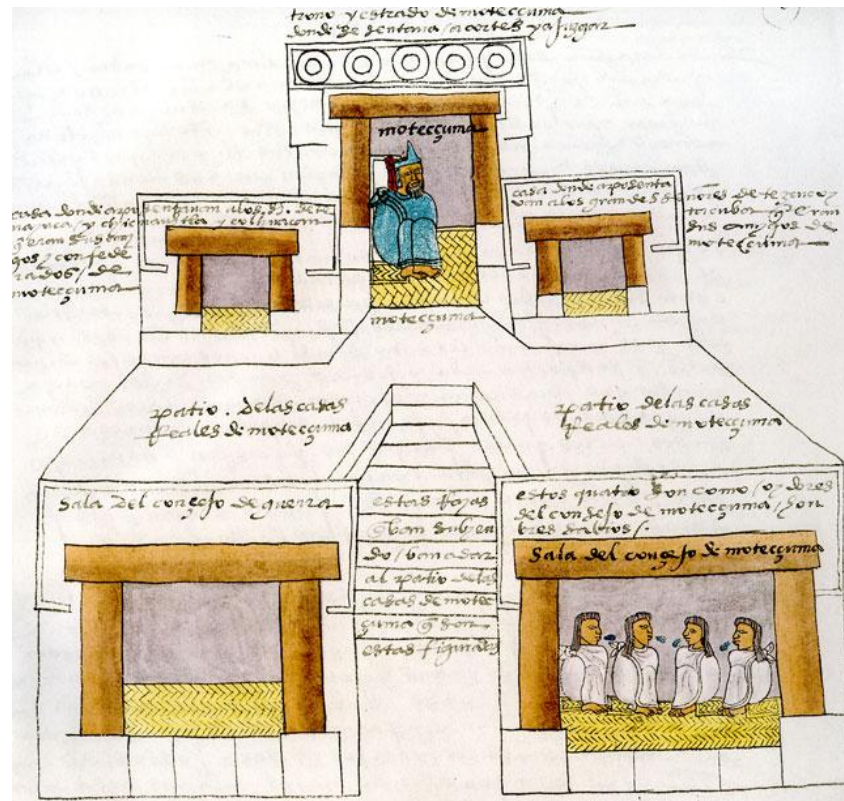 trono y estrado de motecçuma
donde se sentava / a cortes y a juzgar
motecçuma
casa donde aposentavan a los s. de te
nayuca / y chicnauhtla / y colhuacan
q̃ eran sus ami
gos / y confede
rados / de
motecçuma
casa donde aposenta
van a los grandes señores de tezcuco y
tacuba q̃ eran
sus amigos de
motecçuma
motecçuma
patio . de las casas
Reales de motecçuma
patio de las casas
Reales de motecçuma
sala del consejo de guerra
estas Rayas
q̃ van subien
do / van a dar
al patio de las
casas de motec
çuma q̃ son
estas figuradas
estos quatro son como / oydores
del consejo de motecçuma / hon
bres sabios /.
sala del consejo de motecçuma